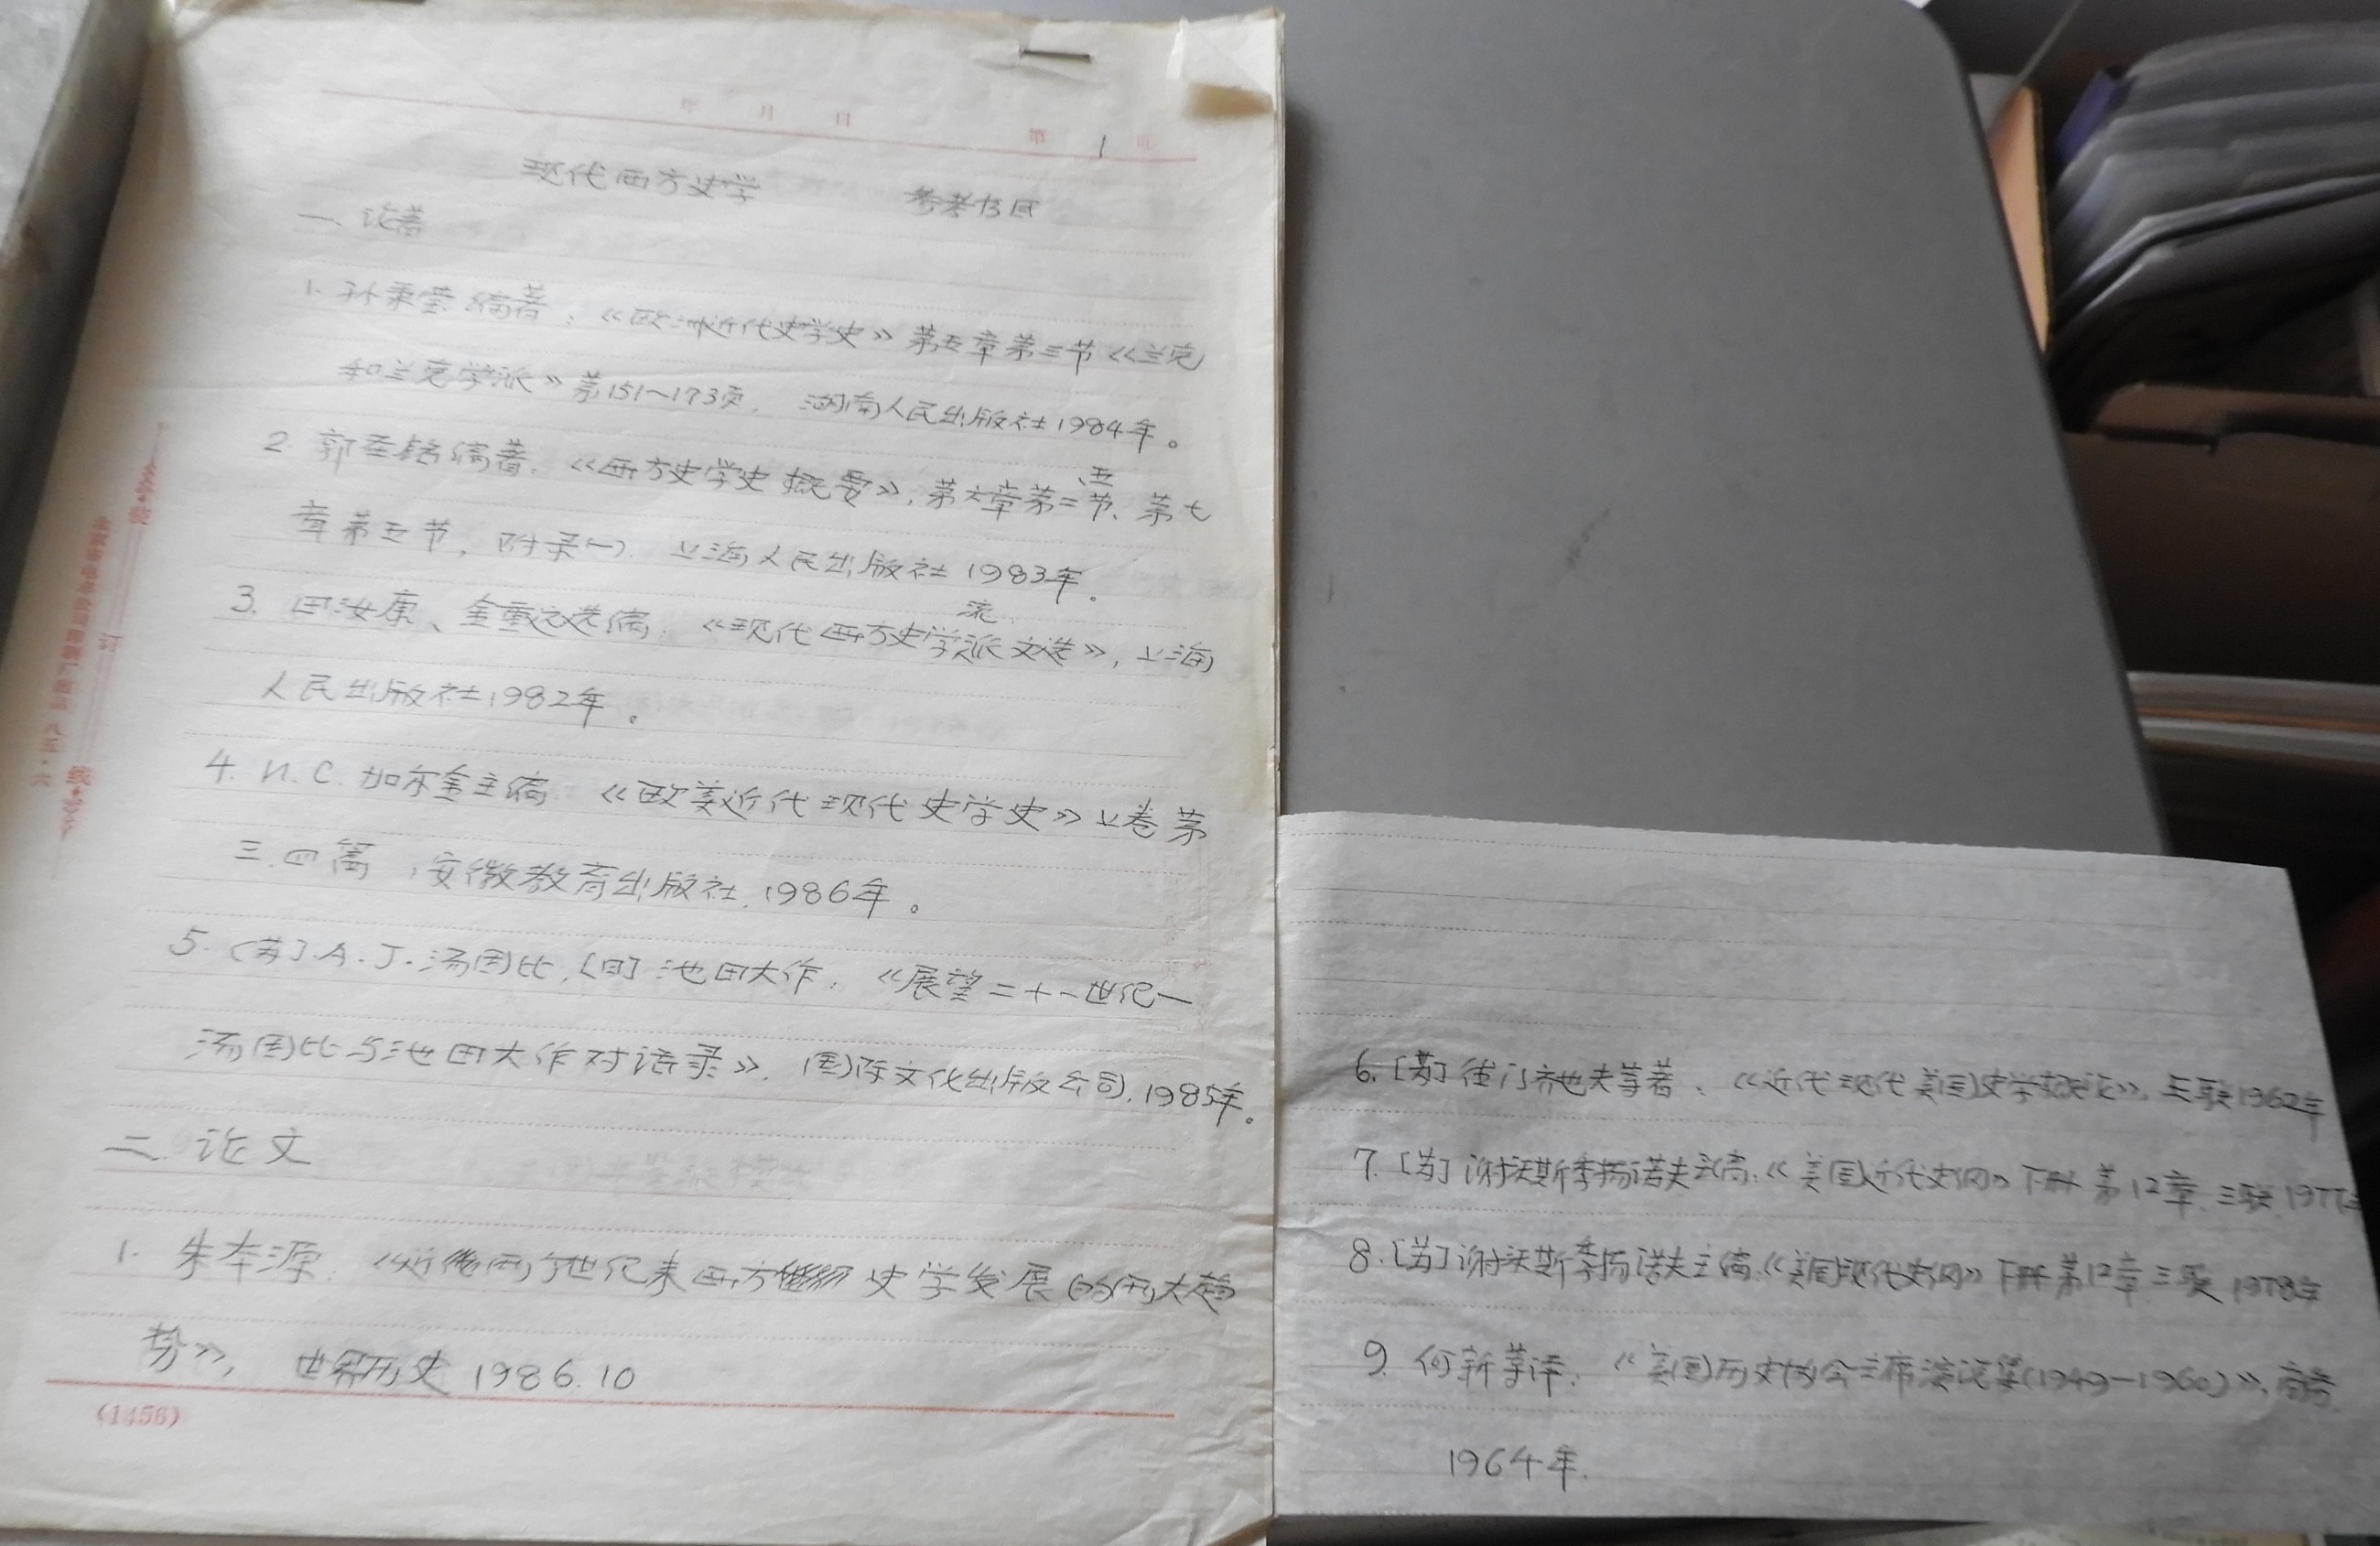 年 月 日 第 1 页
现代西方史学 参考书目
一、论著
1. 孙秉莹编著：《欧洲近代史学史》第五章第三节《兰克
和兰克学派》第151~173页, 湖南人民出版社1984年。
2. 郭圣铭编著：《西方史学史概要》, 第六章第二、五节、第七
章第五节, 附录(一) 上海人民出版社 1983年.
3. 田汝康、金重远选编：《现代西方史学流派文选》, 上海
人民出版社1982年。
4. И. С. 加尔金主编 《欧美近代现代史学史》上卷第
三.四篇, 安徽教育出版社, 1986年。
5. A.J.汤因比, [日] 池田大作, 《展望二十一世纪—
汤因比与池田大作对话录》, 国际文化出版公司, 1985年。
二. 论文
1. 朱本源：《近两个世纪来西方史学发展的两大趋
势》, 世界历史 1986.10
(1456)
6. [苏] 等著：《近代现代美国史学概论》, 三联1962年
7. [苏] 谢沃斯季扬诺夫主编：《美国近代史纲》下册 第12章 三联 1977年
8. [苏] 谢沃斯季扬诺夫主编《美国现代史纲》下册 第12章 三联 1978年
9. 何新等译：《美国历史协会主席演说集(1949-1960)》, 商务
1964年.
订
线